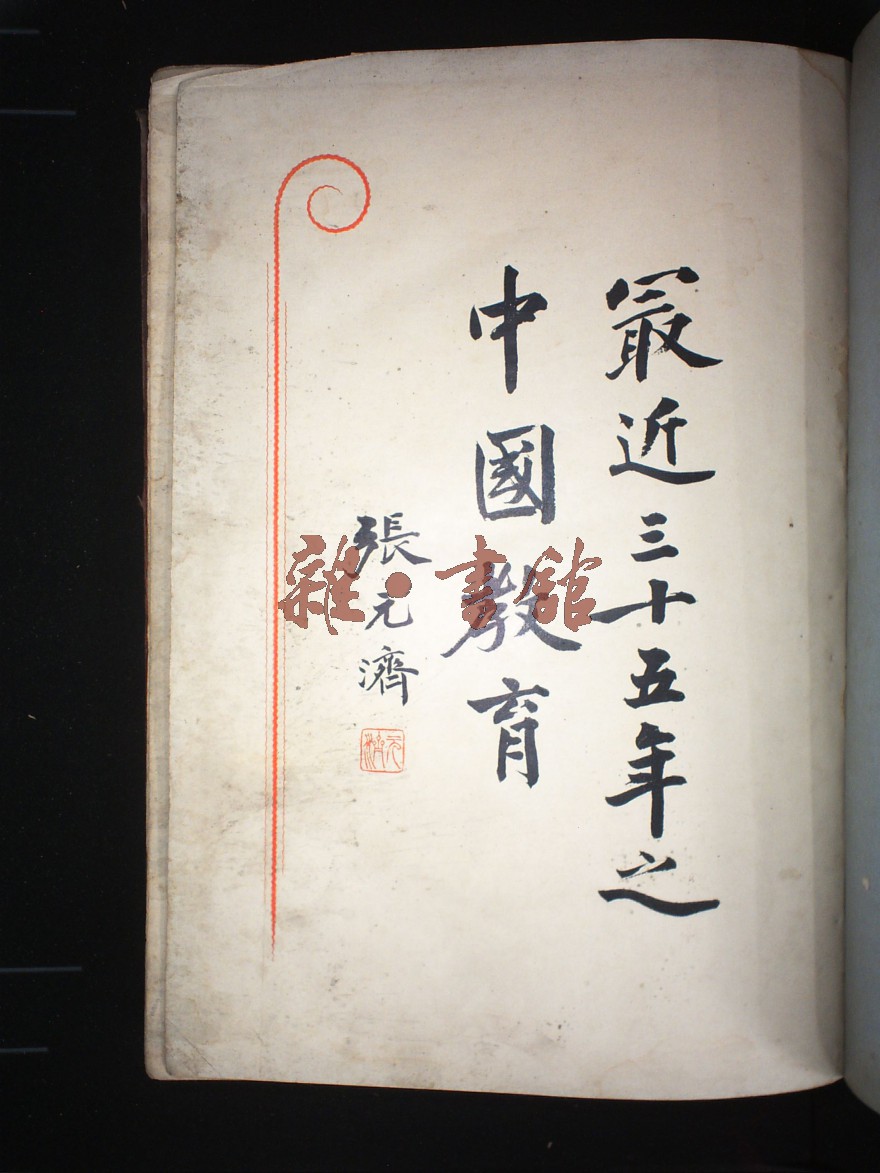 最近三十五年之
中國教育
張元濟
元濟
雜·書館